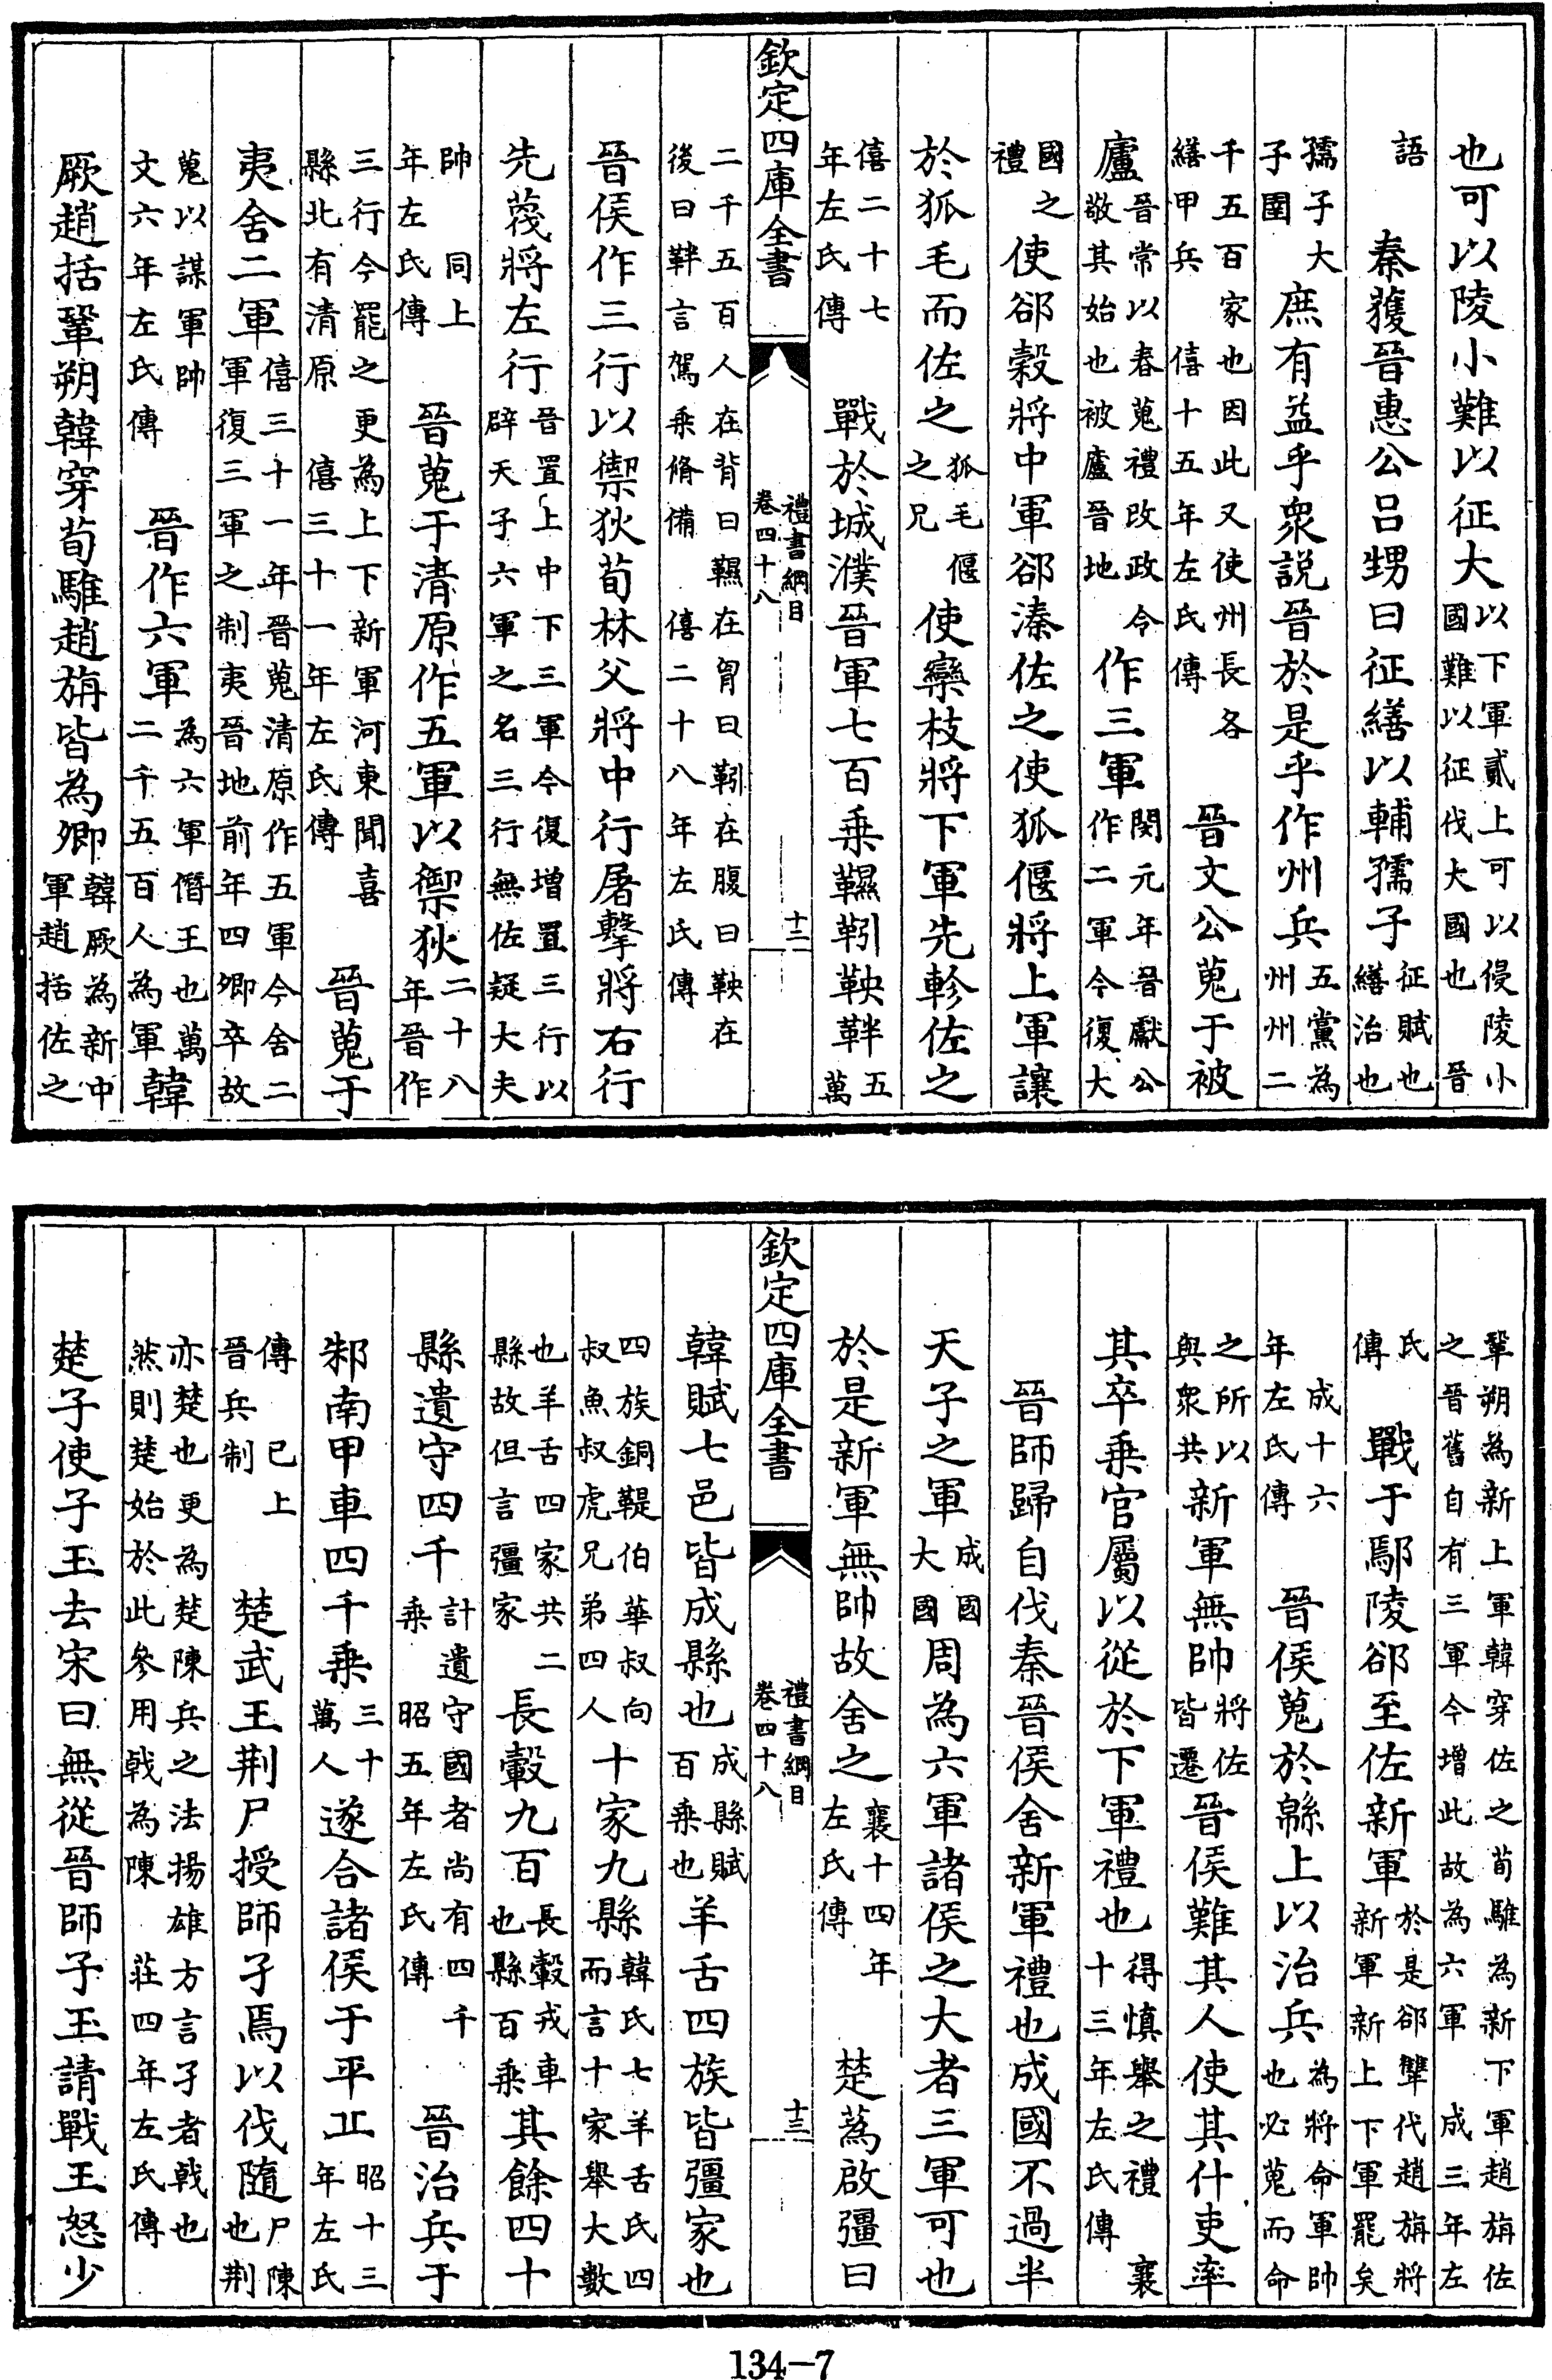 也可以陵小難以征大以下軍貳上可以侵陵小國難以征伐大國也晉
語
秦獲晉惠公呂甥曰征繕以輔孺子征賦也繕治也
孺子大子圉庶有益乎衆説晉於是乎作州兵五黨為州州二
千五百家也因此又使州長各繕甲兵僖十五年左氏傳晉文公蒐于被
廬晉常以春蒐禮改政令敬其始也被廬晉地作三軍閔元年晉獻公作二軍今復大
國之禮使郤縠將中軍郤溱佐之使狐偃將上軍讓
於狐毛而佐之狐毛偃之兄使欒枝將下軍先軫佐之
僖二十七年左氏傳戰於城濮晉軍七百乗韅靷鞅靽五萬
欽定四庫全書
禮書綱目
卷四十八
十二
二千五百人在背曰韅在胷曰靷在腹曰鞅在後曰靽言駕乗脩備僖二十八年左氏傳
晉侯作三行以禦狄荀林父將中行屠擊將右行
先蔑將左行晉置上中下三軍今復增置三行以辟天子六軍之名三行無佐疑大夫
帥同上年左氏傳晉蒐于清原作五軍以禦狄二十八年晉作
三行今罷之更為上下新軍河東聞喜縣北有清原僖三十一年左氏傳晉蒐于
夷舍二軍僖三十一年晉蒐清原作五軍今舍二軍復三軍之制夷晉地前年四卿卒故
蒐以謀軍帥文六年左氏傳晉作六軍為六軍僭王也萬二千五百人為軍韓
厥趙括鞏朔韓穿荀騅趙旃皆為卿韓厥為新中軍趙括佐之
鞏朔為新上軍韓穿佐之荀騅為新下軍趙旃佐之晉舊自有三軍今增此故為六軍成三年左
氏傳戰于鄢陵郤至佐新軍於是郤犨代趙旃將新軍新上下軍罷矣
成十六年左氏傳晉侯蒐於緜上以治兵為將命軍帥也必蒐而命
之所以與衆共新軍無帥將佐皆遷晉侯難其人使其什吏率
其卒乗官屬以從於下軍禮也得慎舉之禮襄十三年左氏傳
晉師歸自伐秦晉侯舍新軍禮也成國不過半
天子之軍成國大國周為六軍諸侯之大者三軍可也
於是新軍無帥故舍之襄十四年左氏傳楚薳啟彊曰
欽定四庫全書
禮書綱目
卷四十八
十三
韓賦七邑皆成縣也成縣賦百乗也羊舌四族皆彊家也
四族銅鞮伯華叔向叔魚叔虎兄弟四人十家九縣韓氏七羊舌氏四而言十家舉大數
也羊舌四家共二縣故但言彊家長轂九百長轂戎車也縣百乗其餘四十
縣遺守四千計遺守國者尚有四千乗昭五年左氏傳晉治兵于
邾南甲車四千乗三十萬人遂合諸侯于平丘昭十三年左氏
傳已上晉兵制楚武王荆尸授師孑焉以伐隨尸陳也荆
亦楚也更為楚陳兵之法揚雄方言孑者戟也然則楚始於此參用戟為陳莊四年左氏傳
楚子使子玉去宋曰無從晉師子玉請戰王怒少
134-7